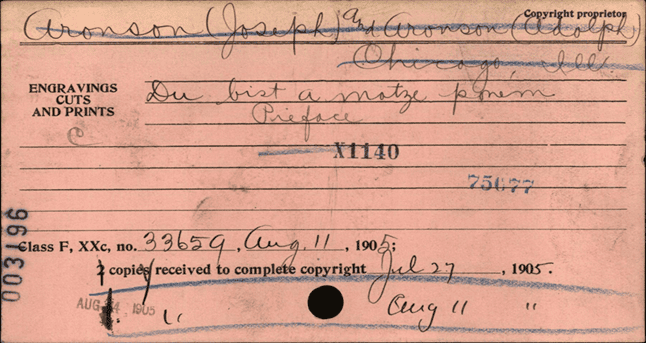 Copyright proprietor
Aronson (Joseph) and Aronson (Adolph)
Chicago, Ill.
ENGRAVINGS
CUTS
AND PRINTS
Du bist a matze ponem
Preface
C
X1140
75677
003196
Class F, XXc, no. 33659, Aug. 11, 1905;
2 copies received to complete copyright Jul 27, 1905.
1. " Aug 11 "
1905